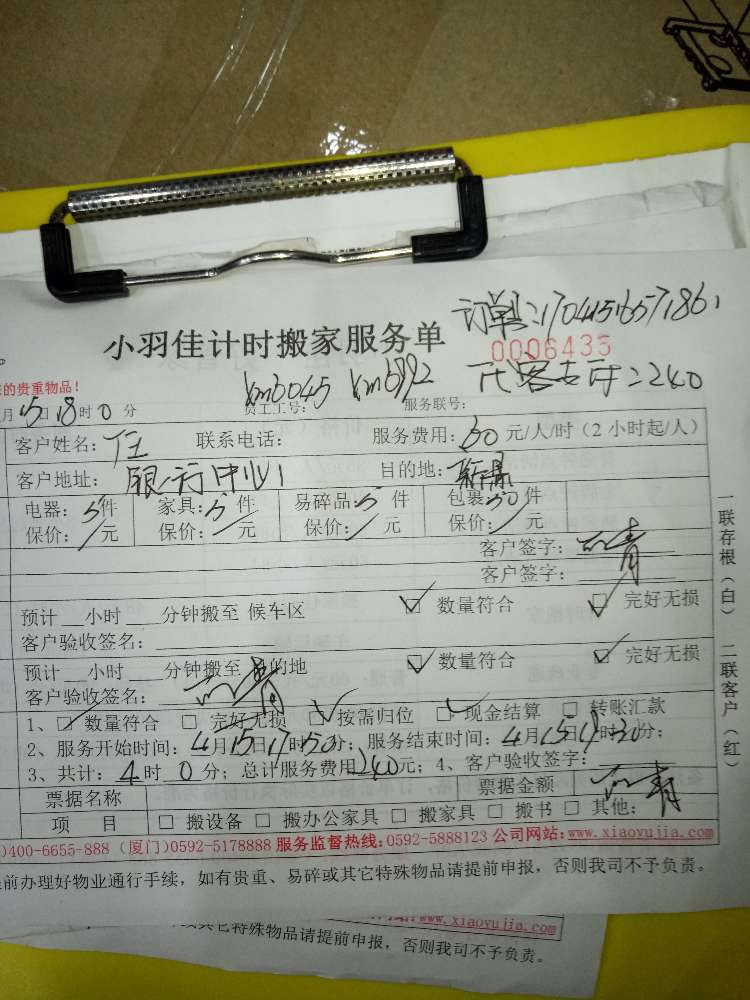 订单:17041516571861
小羽佳计时搬家服务单
0006435
的贵重物品!
月15日18时0分 员工工号: xm6045 xm6992 服务联号: 代客支付:240
客户姓名: 联系电话: 服务费用:60元/人/时(2小时起/人)
客户地址:银行中心 目的地:
电器:5件 家具:5件 易碎品:5件 包裹:50件
保价:/元 保价:/元 保价:/元 保价:/元
客户签字:
客户签字:
预计__小时__分钟搬至 候车区 ☑数量符合 ☑完好无损
客户验收签名:
预计__小时__分钟搬至 目的地 ☑数量符合 ☑完好无损
客户验收签名:
1、☑数量符合 □完好无损 ☑按需归位 ☑现金结算 □转账汇款
2、服务开始时间:4月15日17时50分;服务结束时间:4月15日19时30分;
3、共计:4时0分;总计服务费用240元;4、客户验收签字:
票据名称 票据金额
项 目 □搬设备 □搬办公家具 □搬家具 □搬书 □其他:
)400-6655-888 (厦门)0592-5178888 服务监督热线:0592-5888123 公司网站:www.xiaoyujia.com
前办理好物业通行手续,如有贵重、易碎或其它特殊物品请提前申报,否则我司不予负责。
一联存根(白) 二联客户(红)
www.xiaoyujia.com
其它特殊物品请提前申报,否则我司不予负责。